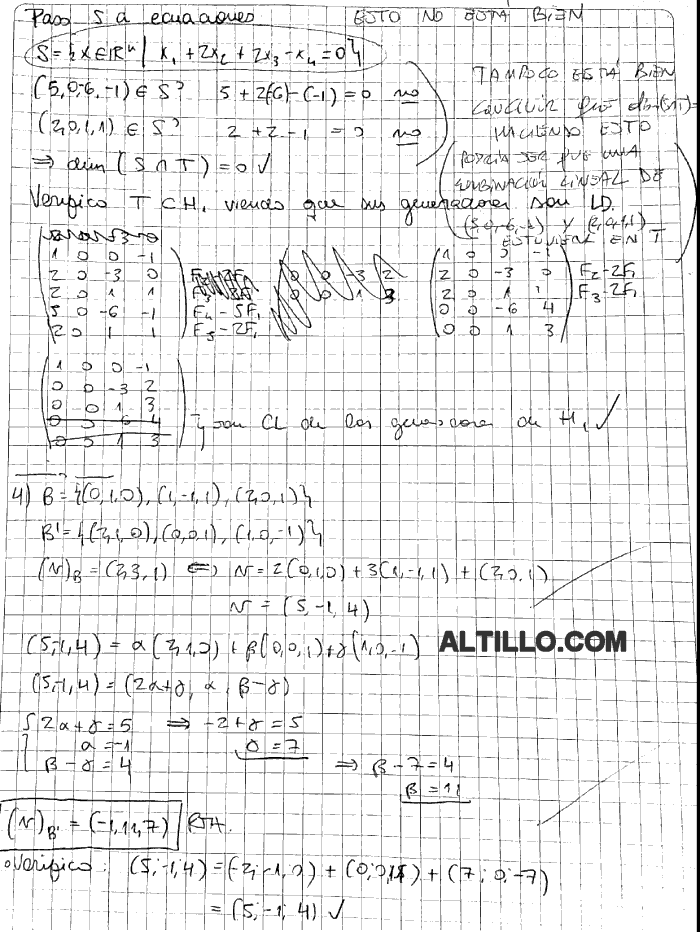 Paso S a ecuaciones
ESTO NO ESTÁ BIEN
S = {x ∈ ℝ⁴ | x₁ + 2x₂ + 2x₃ - x₄ = 0}
(5,0,-6,-1) ∈ S? 5 + 2(-6) - (-1) = 0 no
(2,0,1,1) ∈ S? 2 + 2 - 1 = 0 no
⇒ dim (S ∩ T) = 0 ✓
TAMPOCO ESTÁ BIEN
CONCLUIR QUE dim(S∩T)=
HACIENDO ESTO
PODRÍA SER QUE UNA
COMBINACIÓN LINEAL DE
(5,0,-6,-1) Y (2,0,1,1)
ESTUVIESE EN T
Verifico T ⊂ H, viendo que sus generadores son LD.
1 0 0 -1
2 0 -3 0
2 0 1 1
5 0 -6 -1 F₄ - 5F₁
2 0 1 1 F₅ - 2F₁
0 0 -3 2
0 0 1 3
1 0 0 -1
2 0 -3 0 F₂ - 2F₁
2 0 1 1 F₃ - 2F₁
0 0 -6 4
0 0 1 3
1 0 0 -1
0 0 -3 2
0 0 1 3
0 0 -6 4
0 0 1 3
son CL de los generadores de H, ✓
4) B = {(0,1,0), (1,-1,1), (2,0,1)}
B' = {(2,1,0), (0,0,1), (1,0,-1)}
(v)_B = (2,3,1) ⇔ v = 2(0,1,0) + 3(1,-1,1) + (2,0,1)
v = (5,-1,4)
(5,-1,4) = α(2,1,0) + β(0,0,1) + γ(1,0,-1)
ALTILLO.COM
(5,-1,4) = (2α+γ, α, β-γ)
{ 2α + γ = 5 ⇒ -2 + γ = 5
α = -1 γ = 7
β - γ = 4 ⇒ β - 7 = 4
β = 11
(v)_B' = (-1,11,7) RTA.
Verifico: (5;-1;4) = (-2;-1,0) + (0;0,11) + (7;0;-7)
= (5;-1;4) ✓